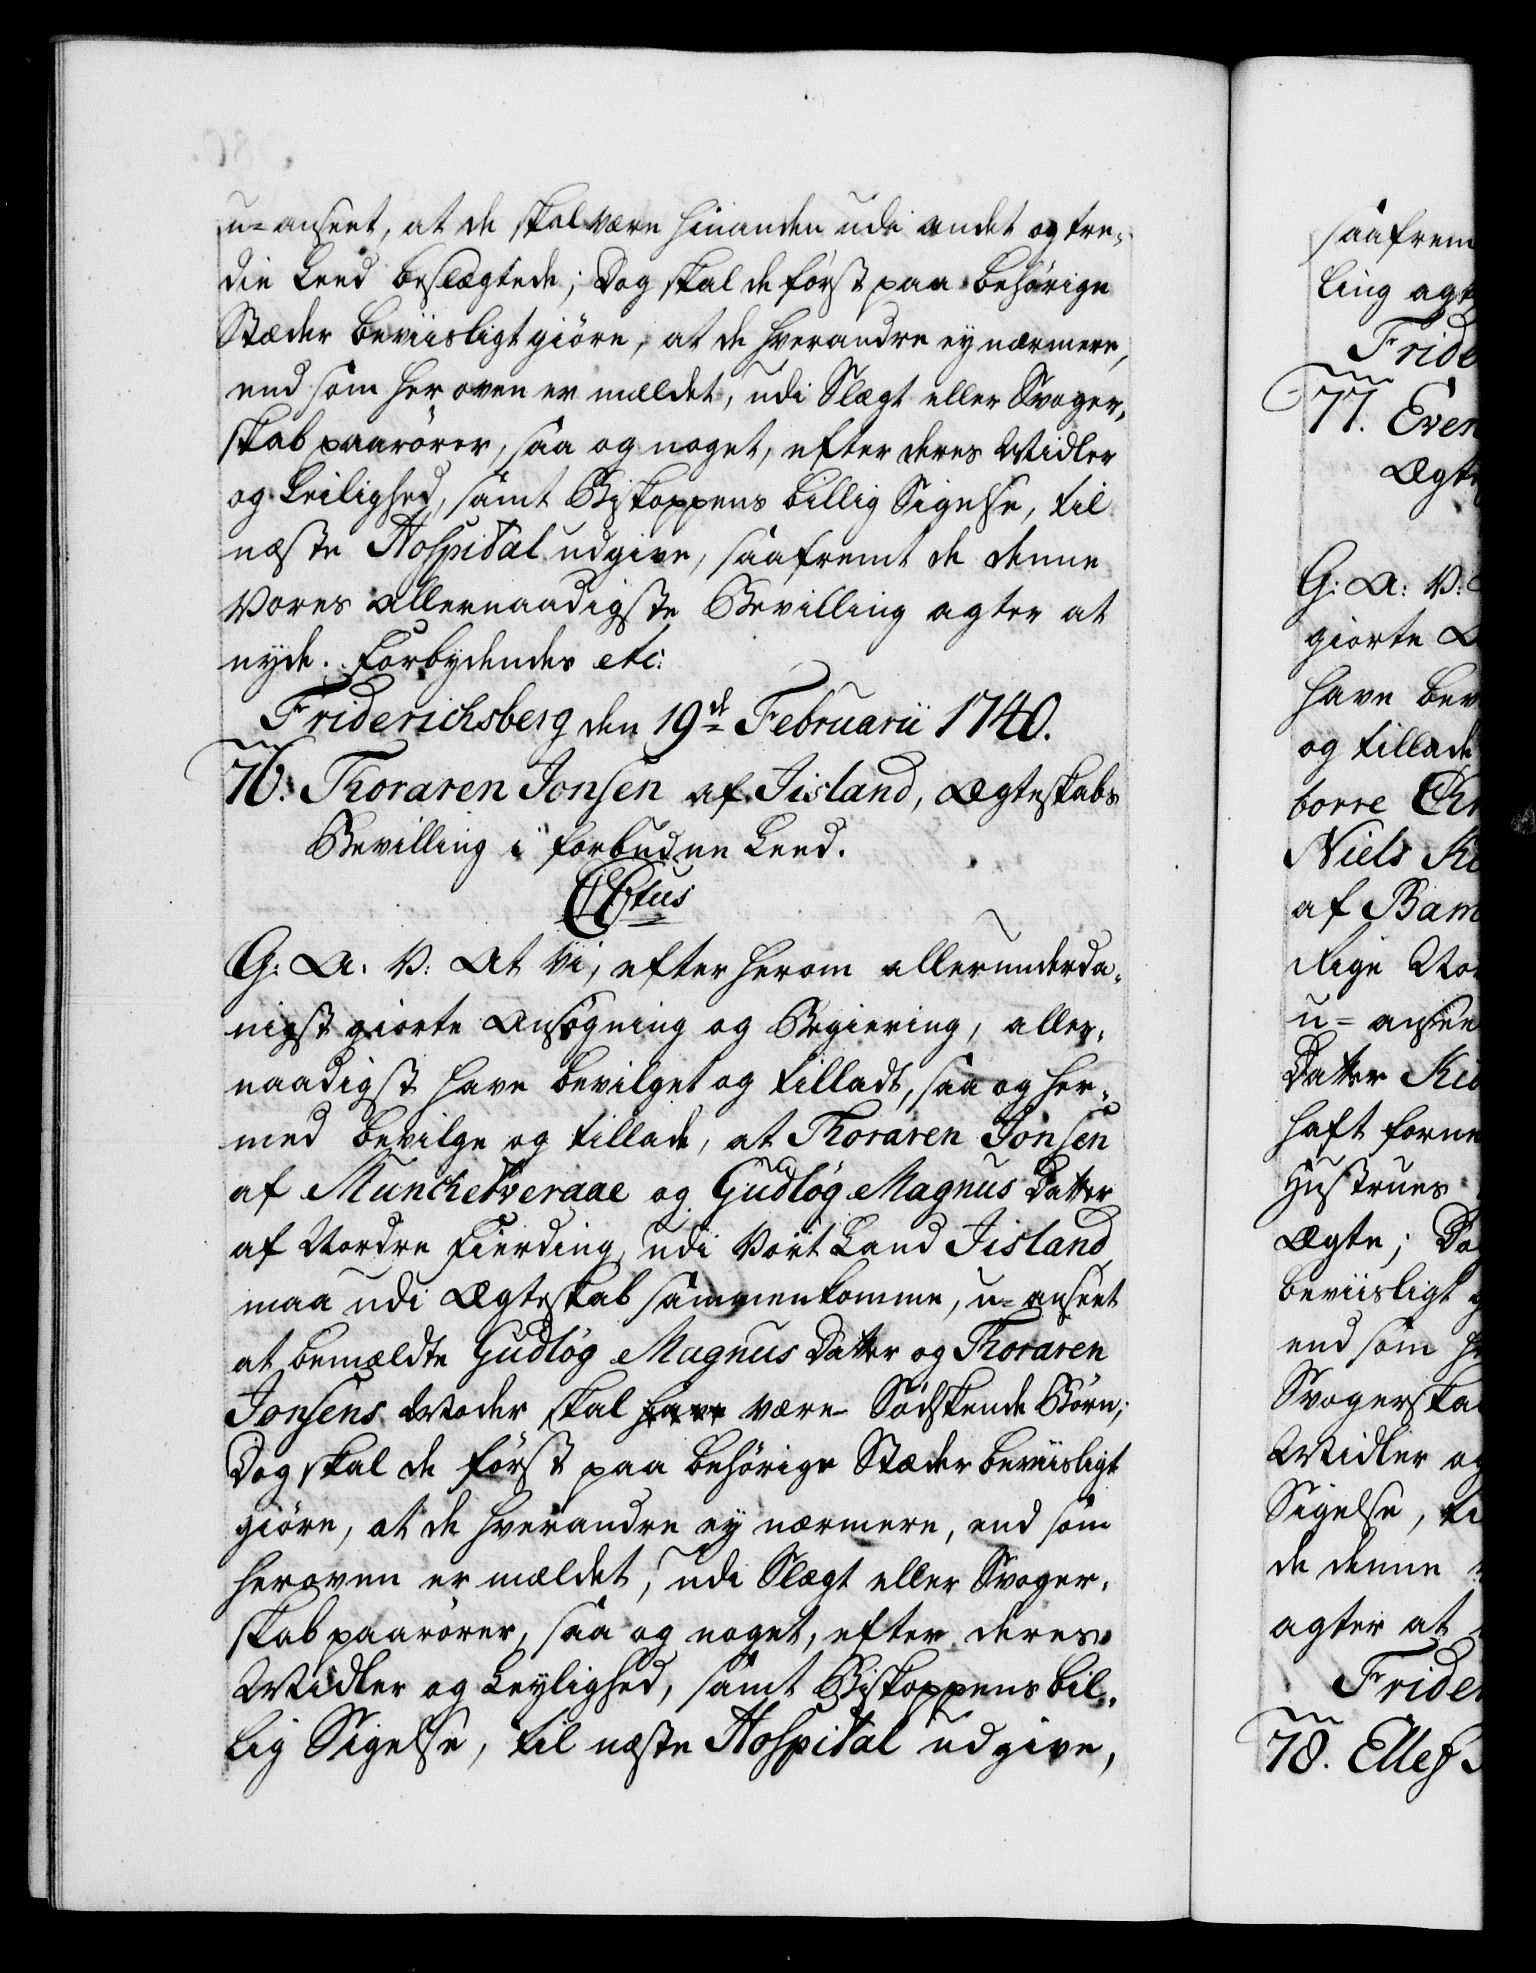 u-anseet, at de skal være hinanden udi andet og tre-
die Leed beslægtede; Dog skal de først paa behörige
Stæder beviisligt giöre, at de hverandre ey nærmere,
end som her oven er mældet, udi Slægt eller Svoger-
skab paarörer, saa og noget, efter deres Midler
og Leilighed, samt Biskoppens billig Sigelse, til
næste Hospital udgive, saafremt de denne
Vores allernaadigste Bevilling agter at
nyde. Forbydendes etc:
Friderichsberg den 19de Februarii 1740.
76. Thoraren Jonsen af Jisland, Ægteskabs
Bevilling i forbudne Leed.
C6tus
G: A: V: At Vi, efter herom allerunderda-
nigst giorte Ansögning og Begiering, aller-
naadigst have bevilget og tilladt, saa og her-
med bevilge og tillade, at Thoraren Jonsen
af Munchetveraae og Gudløg Magnus Datter
af Nordre Fierding udi Vort Land Jisland
maa udi Ægteskab sammenkomme, u-anseet
at bemældte Gudløg Magnus Datter og Thoraren
Jonsens Moder skal have være Södskende Börn;
Dog skal de först paa behörige Stæder beviisligt
giöre, at de hverandre ey nærmere, end som
heroven er mældet, udi Slægt eller Svoger-
skab paarörer, saa og noget, efter deres
Midler og Leylighed, samt Biskoppens bil-
lig Sigelse, til næste Hospital udgive,
saafrem
ling agt
Fride
77. Even
Ægte
G: A: V:
giorte
have bev
og tillade
borre
Niels
af Bam
rige
u-ansee
Datter
haft forne
Hustrues
Ægte; Do
beviisligt
end som
Svogerska
Midler og
Sigelse, ti
de denne
agter at
Frider
78. Ellef